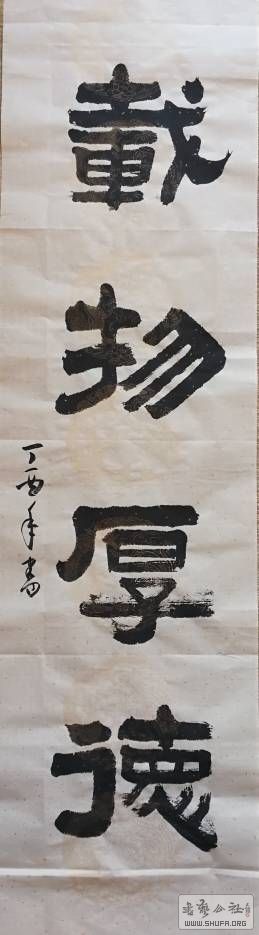 載物厚德
丁酉年書
書藝公社
WWW.SHUFA.ORG